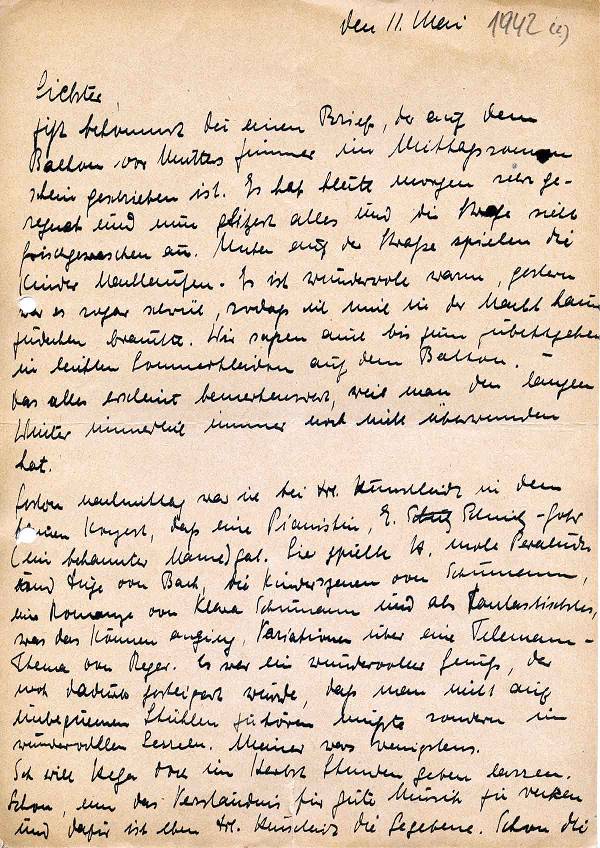 den 11. Mai 1942 (2)
Liebster,
jetzt bekommst du einen Brief, der auf dem
Balkon vor Mutters Zimmer im Mittagssonnen
schein geschrieben ist. Es hat heute morgen sehr ge-
regnet und nun glitzert alles und die Straße sieht
frischgewaschen aus. Unten auf der Straße spielen die
Kinder Nachlaufen. Es ist wundervoll warm, gestern
war es sogar schwül, sodaß ich mich in der Nacht kaum
zudecken brauchte. Wir saßen auch bis zum zubettgehen
in leichten Sommerkleidern auf dem Balkon. –
Das alles erscheint bemerkenswert, weil man den langen
Winter innerlich immer noch nicht überwunden
hat.
Gestern nachmittag war ich bei Frl. in dem
kleinen Konzert, daß eine Pianistin, E.
(ein bekannter Name) gab. Sie spielte moll
und Fuge von Bach, die Kinderszenen von Schumann,
eine Romanze von Klara Schumann und als Fantastischstes,
was das Können anging, Variationen über eine Telemann-
Thema von Reger. Es war ein wundervoller Genuß, der
noch dadurch gesteigert wurde, daß man nicht auf
unbequemen Stühlen zuhören mußte sondern in
wundervollen Sesseln. Meiner wars wenigstens.
Ich will doch im Herbst Stunden geben lassen.
Schon, um das Verständnis für gute Musik zu wecken
und dafür ist eben Frl. die Gegebene. Schon die